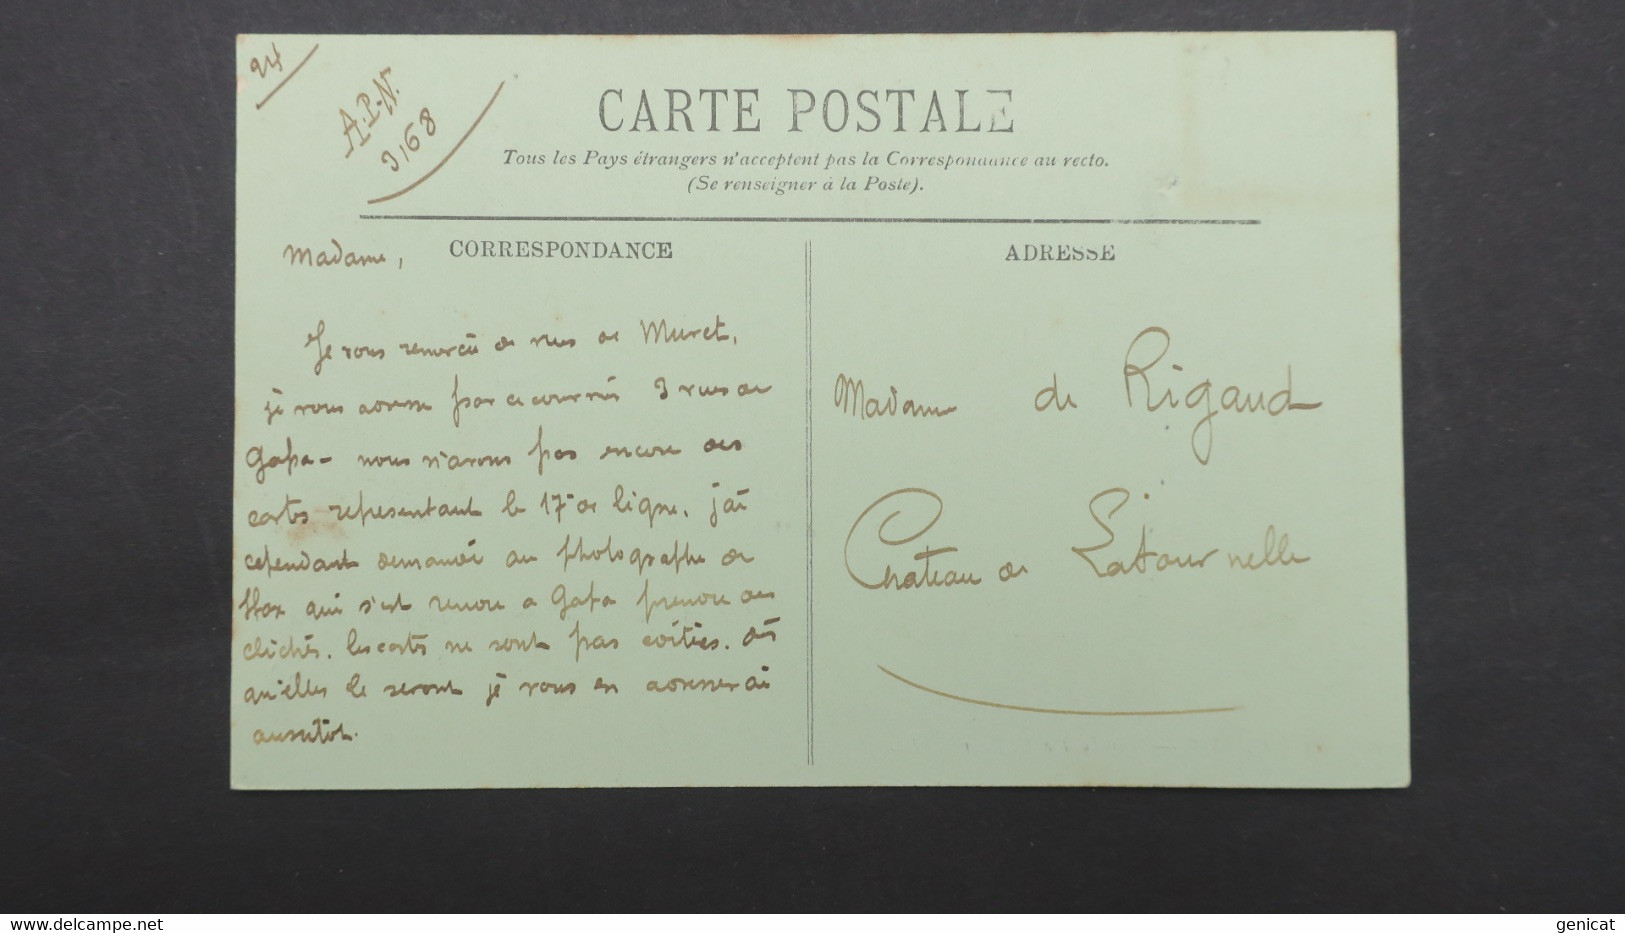 24
A.P.N.
3168
CARTE POSTALE
Tous les Pays étrangers n'acceptent pas la Correspondance au recto.
(Se renseigner à la Poste).
CORRESPONDANCE
Madame,
Je vous remercie de vues de Muret,
je vous adresse par ce courrier 3 vues de
Gafsa - nous n'avons pas encore des
cartes representant le 17e de ligne. j'ai
cependant demandé au photographe de
Sfax qui s'est rendu a Gafsa prendre des
clichés. les cartes ne sont pas editées. dès
qu'elles le seront je vous en adresserai
aussitot.
ADRESSE
Madame de Rigaud
Chateau de Latournelle
www.delcampe.net
genicat